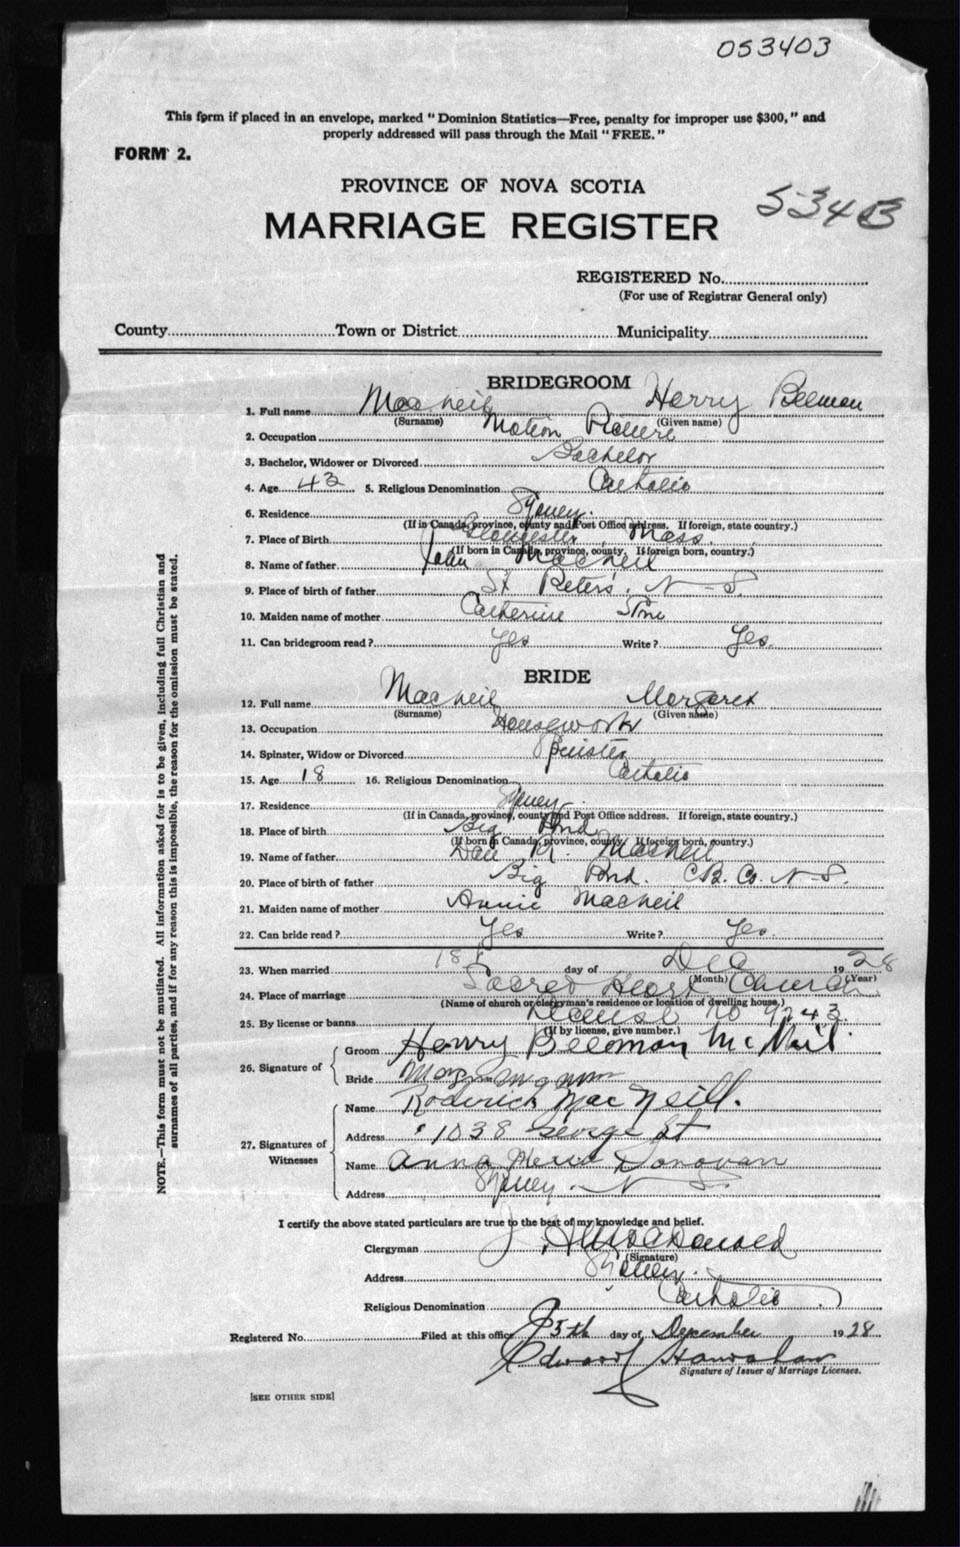 053403
This form if placed in an envelope, marked "Dominion Statistics—Free, penalty for improper use $300," and
properly addressed will pass through the Mail "FREE."
FORM 2.
PROVINCE OF NOVA SCOTIA
53403
MARRIAGE REGISTER
REGISTERED No.
(For use of Registrar General only)
County Town or District Municipality
NOTE.—This form must not be mutilated. All information asked for is to be given, including full Christian and
surnames of all parties, and if for any reason this is impossible, the reason for the omission must be stated.
BRIDEGROOM
1. Full name MacNeil Henry Beeman
(Surname) (Given name)
2. Occupation Motion Picture
3. Bachelor, Widower or Divorced Bachelor
4. Age 43 5. Religious Denomination Catholic
6. Residence Sydney.
(If in Canada, province, county and Post Office address. If foreign, state country.)
7. Place of Birth Gloucester, Mass.
(If born in Canada, province, county. If foreign born, country.)
8. Name of father John MacNeil
9. Place of birth of father St Peters, N-S.
10. Maiden name of mother Catherine
11. Can bridegroom read? Yes Write? Yes.
BRIDE
12. Full name MacNeil Margaret
(Surname) (Given name)
13. Occupation Housework
14. Spinster, Widow or Divorced Spinster
15. Age 18 16. Religious Denomination Catholic
17. Residence Sydney.
(If in Canada, province, county and Post Office address. If foreign, state country.)
18. Place of birth Big Pond
(If born in Canada, province, county. If foreign born, country.)
19. Name of father Dan R. MacNeil
20. Place of birth of father Big Pond. C.B. Co. N-S.
21. Maiden name of mother Annie MacNeil
22. Can bride read? Yes Write? Yes.
23. When married day of Dec 1928
(Month) (Year)
24. Place of marriage Sacred Heart Church
(Name of church or clergyman's residence or location of dwelling house.)
25. By license or banns License No 9243.
(If by license, give number.)
26. Signature of
Groom Henry Beeman McNeil.
Bride
27. Signatures of Witnesses
Name Roderick MacNeill.
Address 1038 George St
Name Anna Donovan
Address Sydney. N-S.
I certify the above stated particulars are true to the best of my knowledge and belief.
Clergyman J. H. MacDonald
(Signature)
Address Sydney.
Religious Denomination Catholic
Registered No. Filed at this office 5th day of December 1928
Edward
Signature of Issuer of Marriage Licenses.
[SEE OTHER SIDE]